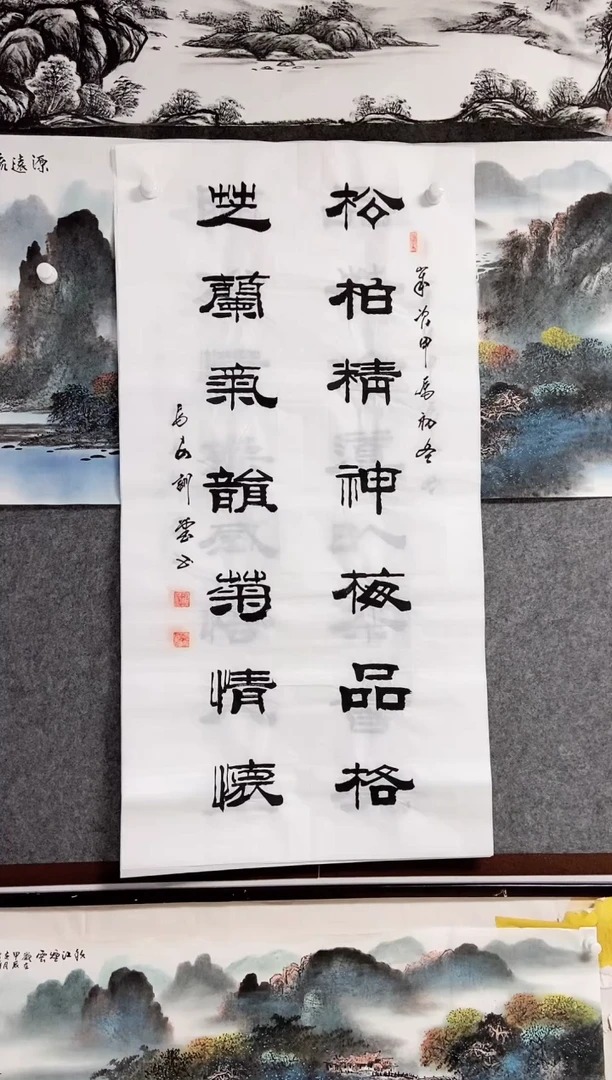 源遠
歲次甲 初冬
松柏精神梅品格
芝蘭氣韻菊情懷
書
江煙雲